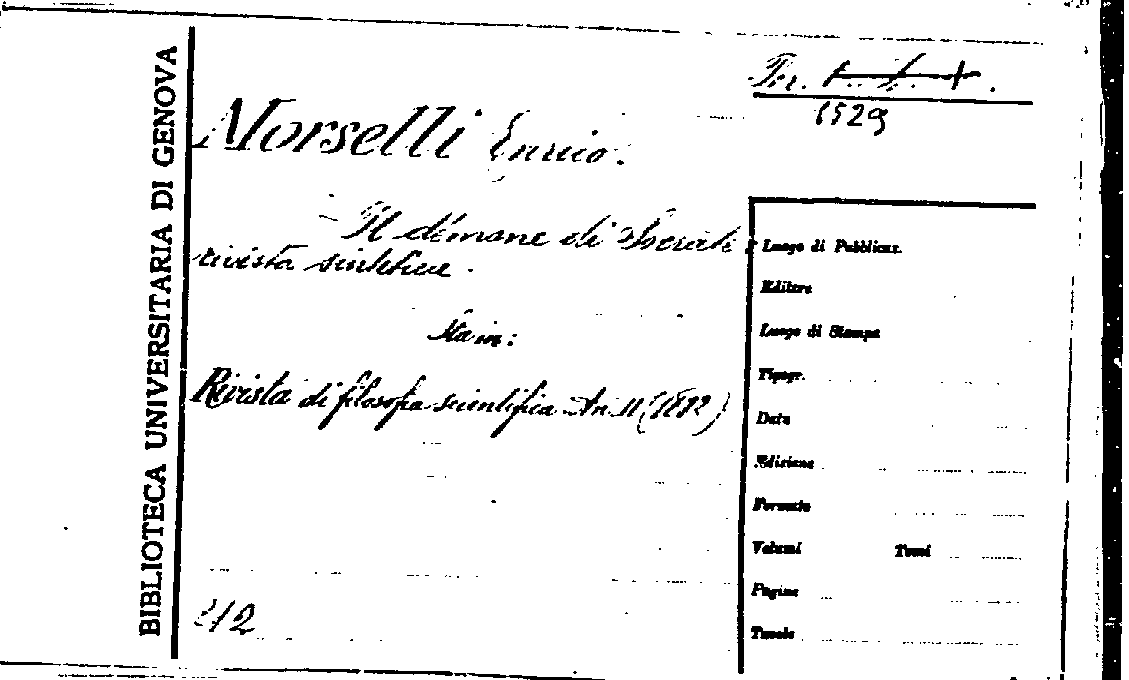 BIBLIOTECA UNIVERSITARIA DI GENOVA
Per.
1529
Morselli Enrico.
Il démone di Socrate
rivista sintetica.
Sta in:
Rivista di filosofia scientifica An. II (1882)
Luogo di Pubblicaz.
Editore
Luogo di Stampa
Tipogr.
Data
Edizione
Formato
Volumi Tomi
Pagine
Tavole